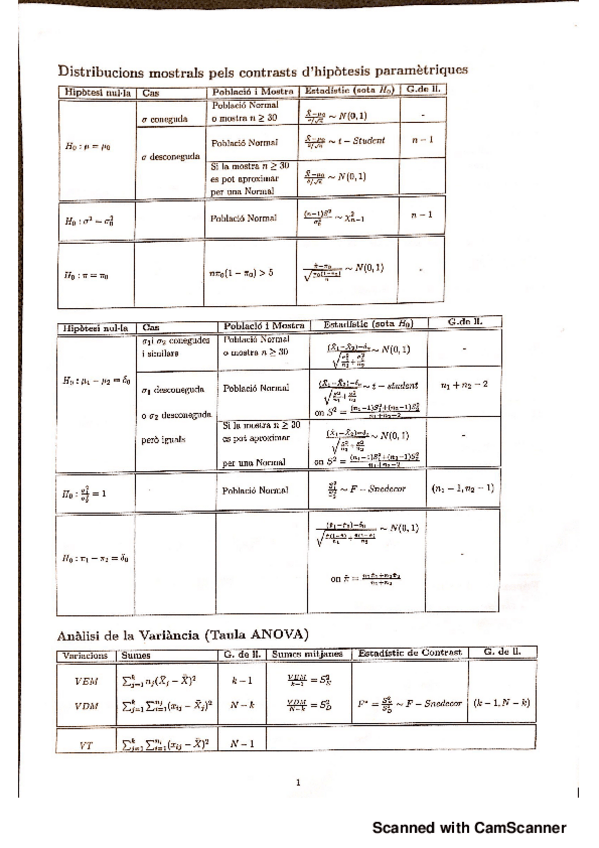 Distribucions mostrals pels contrasts d'hipòtesis paramètriques
Hipòtesi nul·la Cas Població i Mostra Estadístic (sota H₀) G.de ll.
H₀ : μ = μ₀
σ coneguda
Població Normal
o mostra n ≥ 30
(X̄−μ₀)/(σ/√n) ~ N(0,1)
-
σ desconeguda
Població Normal
(X̄−μ₀)/(S/√n) ~ t − Student
n − 1
Si la mostra n ≥ 30
es pot aproximar
per una Normal
(X̄−μ₀)/(S/√n) ~ N(0,1)
H₀ : σ² = σ₀² Població Normal (n−1)S²/σ₀² ~ χ²ₙ₋₁ n − 1
H₀ : π = π₀ nπ₀(1 − π₀) > 5 (π̂−π₀)/√(π₀(1−π₀)/n) ~ N(0,1) -
Hipòtesi nul·la Cas Població i Mostra Estadístic (sota H₀) G.de ll.
H₀ : μ₁ − μ₂ = δ₀
σ₁i σ₂ conegudes
i similars
Població Normal
o mostra n ≥ 30
((X̄₁−X̄₂)−δ₀)/√(σ₁²/n₁+σ₂²/n₂) ~ N(0,1)
-
σ₁ desconeguda
o σ₂ desconeguda
però iguals
Població Normal
((X̄₁−X̄₂)−δ₀)/√(S²/n₁+S²/n₂) ~ t − student
on S² = ((n₁−1)S₁²+(n₂−1)S₂²)/(n₁+n₂−2)
n₁ + n₂ − 2
Si la mostra n ≥ 30
es pot aproximar
per una Normal
((X̄₁−X̄₂)−δ₀)/√(S²/n₁+S²/n₂) ~ N(0,1)
on S² = ((n₁−1)S₁²+(n₂−1)S₂²)/(n₁+n₂−2)
-
H₀ : σ₁²/σ₂² = 1 Població Normal S₁²/S₂² ~ F − Snedecor (n₁ − 1, n₂ − 1)
H₀ : π₁ − π₂ = δ₀
((π̂₁−π̂₂)−δ₀)/√(π̂(1−π̂)/n₁+π̂(1−π̂)/n₂) ~ N(0,1)
on π̂ = (n₁π̂₁+n₂π̂₂)/(n₁+n₂)
-
Anàlisi de la Variància (Taula ANOVA)
Variacions Sumes G. de ll. Sumes mitjanes Estadístic de Contrast G. de ll.
VEM ∑ⱼ₌₁ᵏ nⱼ(X̄ⱼ − X̄)² k − 1 VEM/(k−1) = S²
VDM ∑ⱼ₌₁ᵏ ∑ᵢ₌₁ⁿʲ(xᵢⱼ − X̄ⱼ)² N − k VDM/(N−k) = S²_D F* = ~ F − Snedecor (k − 1, N − k)
VT ∑ⱼ₌₁ᵏ ∑ᵢ₌₁ⁿʲ(xᵢⱼ − X̄)² N − 1
1
Scanned with CamScanner